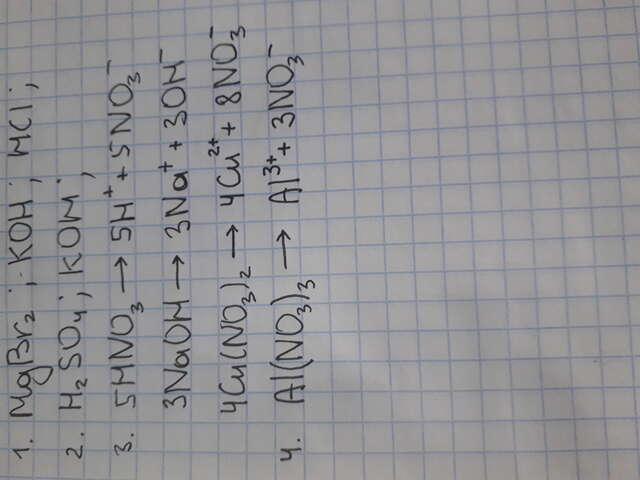 1. MgBr₂ ; KOH ; HCl ;
2. H₂SO₄ ; KOH ;
3. 5HNO₃ → 5H⁺ + 5NO₃⁻
3NaOH → 3Na⁺ + 3OH⁻
4Cu(NO₃)₂ → 4Cu²⁺ + 8NO₃⁻
4. Al(NO₃)₃ → Al³⁺ + 3NO₃⁻